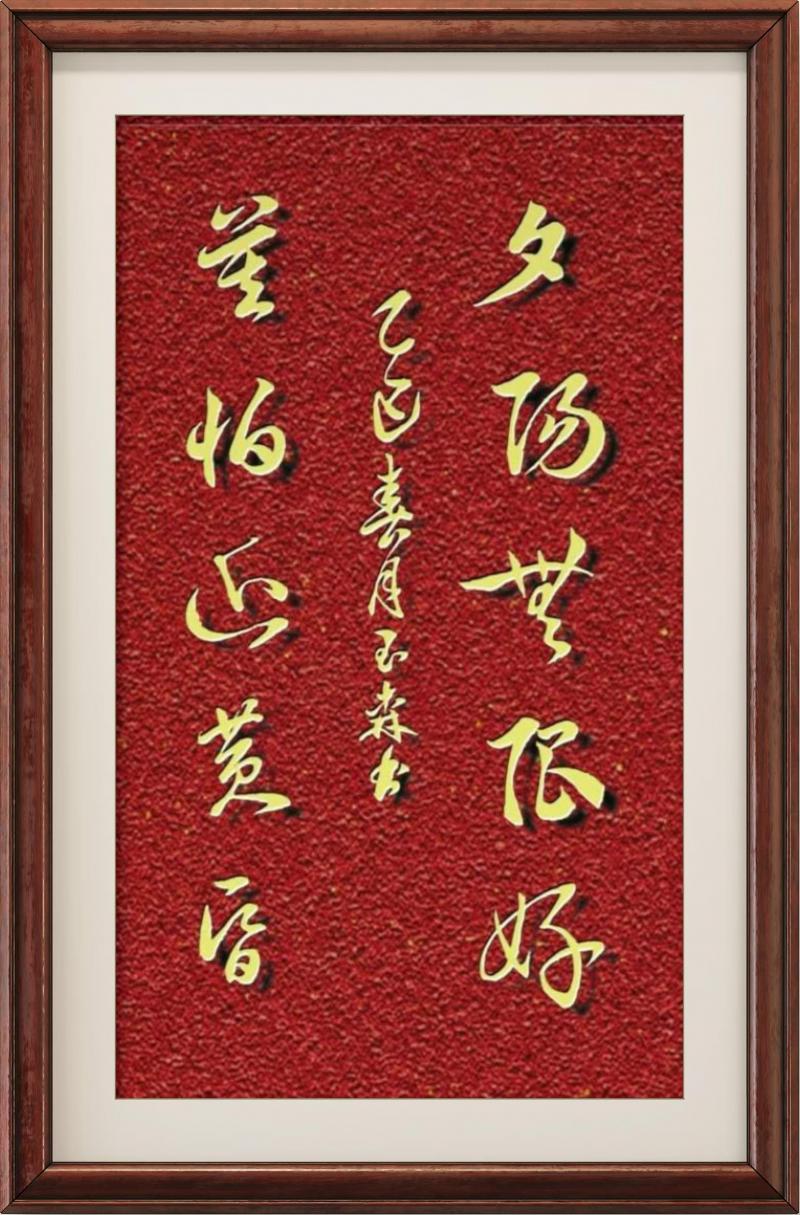 夕陽無限好
莫怕近黄昏
乙巳春月玉森书